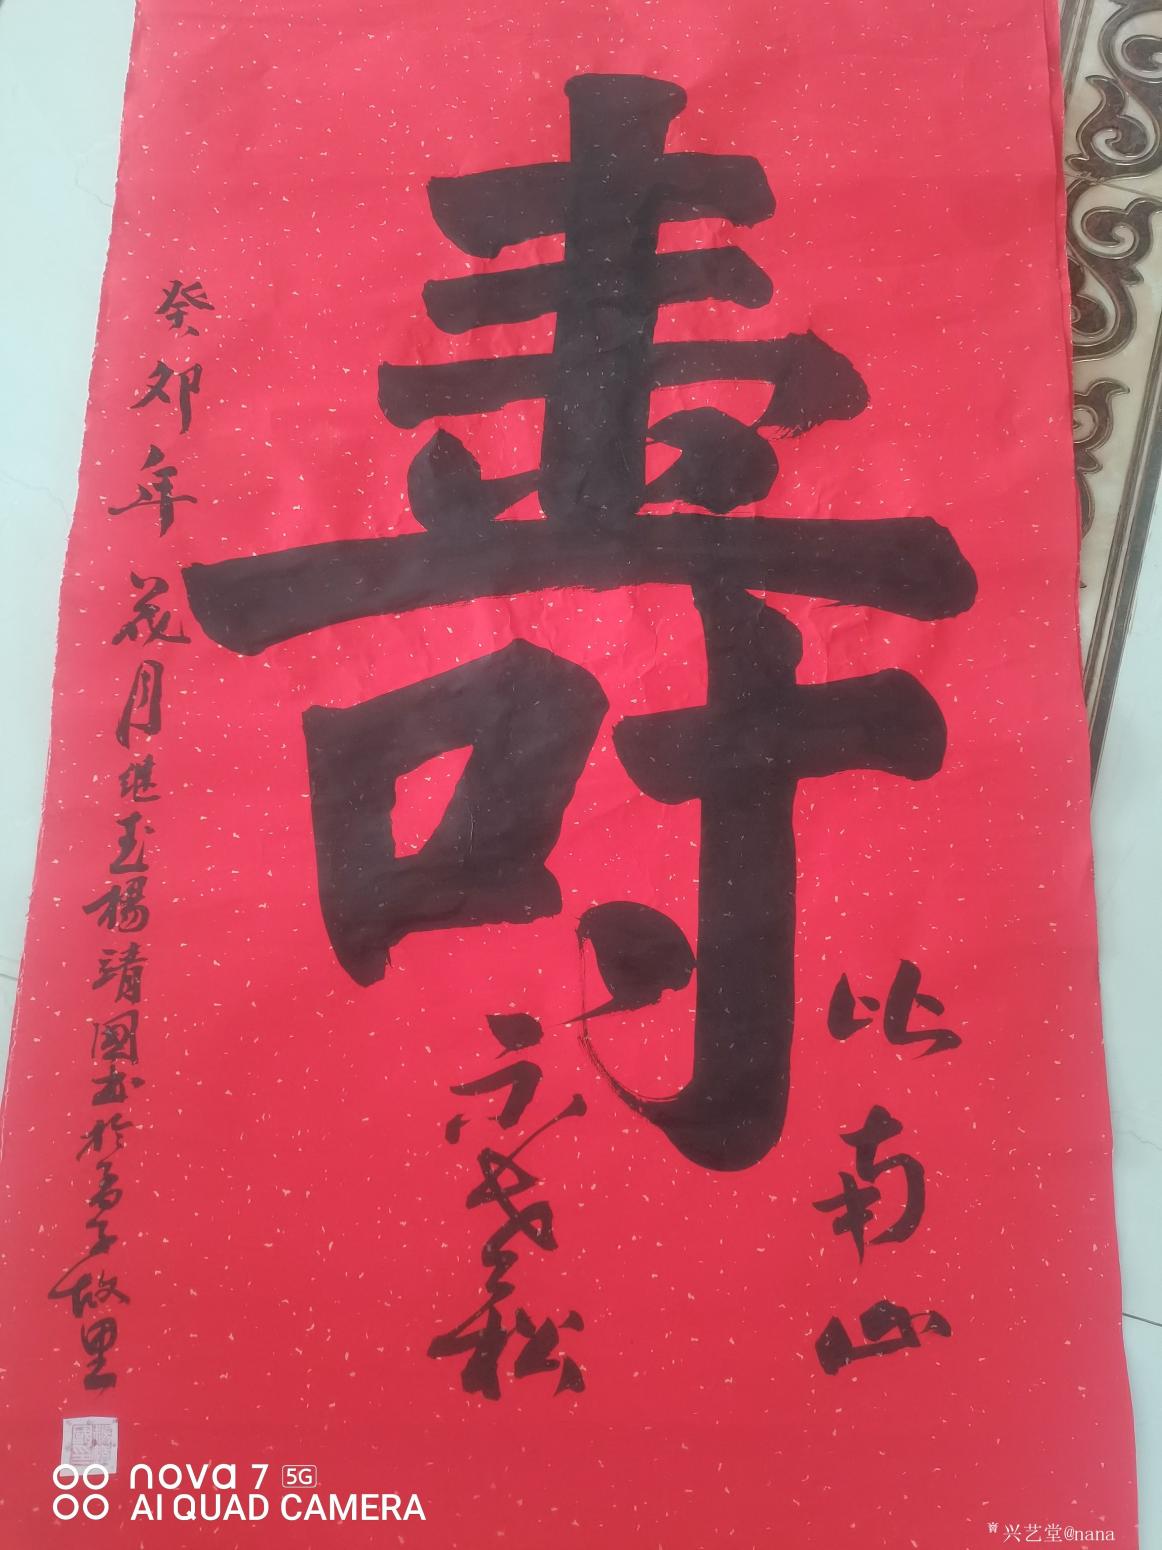 壽
比南山
不老松
癸卯年花月继玉楊清國书於孟子故里
nova 7 5G
AI QUAD CAMERA
兴艺堂@nana